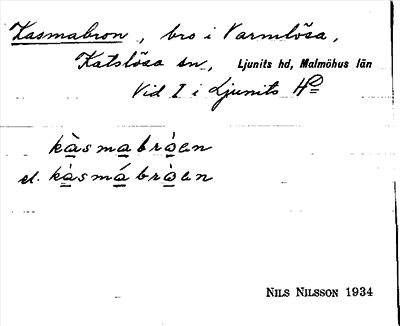 Kasmabron, bro i Varmlösa,
Katslösa sn, Ljunits hd, Malmöhus län
Vid I i Ljunits Hd
kàsmabrȧen
el. kásmábrȧen
NILS NILSSON 1934